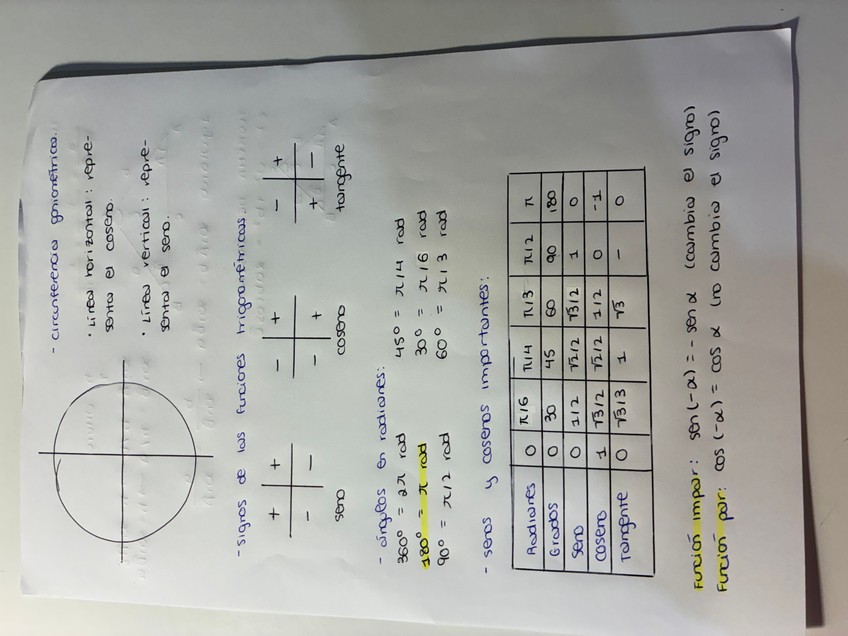 - circunferencia goniométrica.
• Línea horizontal: repre-
senta el coseno.
• Línea vertical: repre-
senta el seno.
- signos de las funciones trigonométricas.
+ + - + - +
- - - + + -
seno coseno tangente
- ángulos en radianes:
360° = 2π rad 45° = π/4 rad
180° = π rad 30° = π/6 rad
90° = π/2 rad 60° = π/3 rad
- senos y cosenos importantes:
Radianes 0 π/6 π/4 π/3 π/2 π
Grados 0 30 45 60 90 180
Seno 0 1/2 √2/2 √3/2 1 0
Coseno 1 √3/2 √2/2 1/2 0 -1
Tangente 0 √3/3 1 √3 - 0
Función impar: sen(-α) = - sen α (cambia el signo)
Función par: cos (-α) = cos α (no cambia el signo)